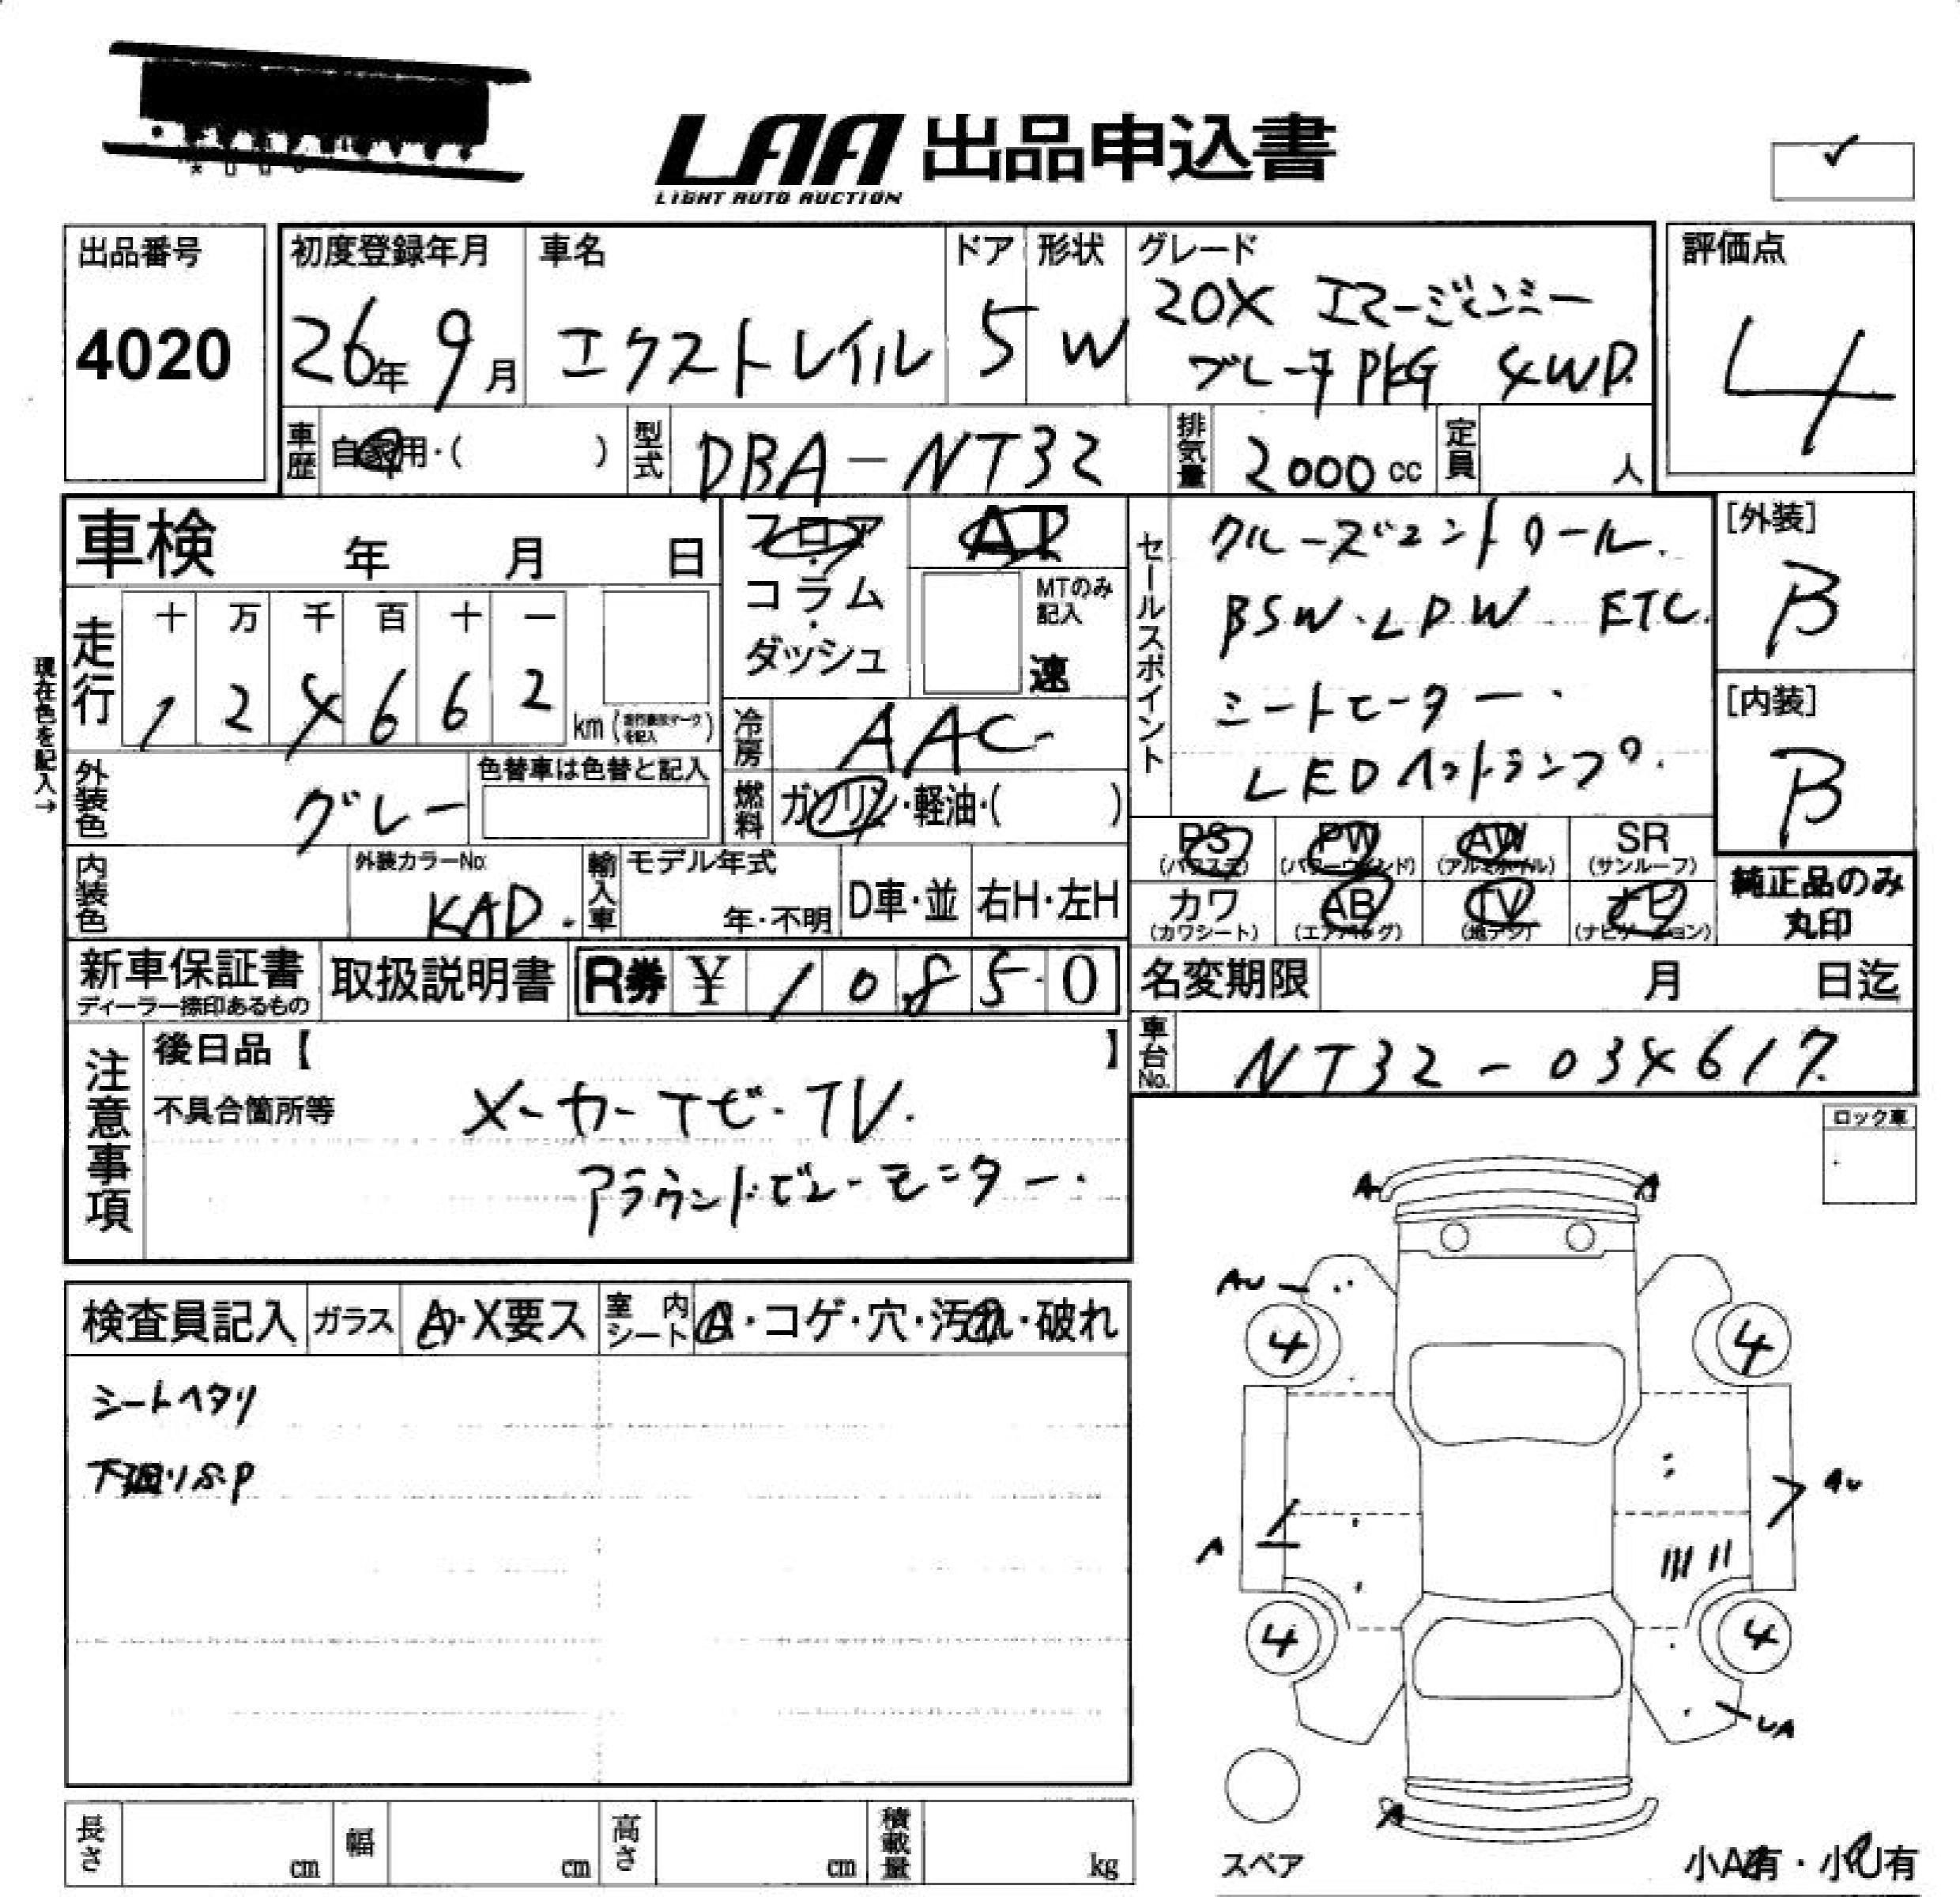 LAA 出品申込書
LIGHT AUTO AUCTION
✓
出品番号
4020
初度登録年月
26年 9月
車名
エクストレイル
ドア
5
形状
W
グレード
20X エマージェンシー
ブレーキPKG 4WD
評価点
4
車歴
自家用・( )
型式
DBA-NT32
排気量
2000 cc
定員
人
車検 年 月 日
フロア・コラム・ダッシュ
AT
MTのみ記入
速
セールスポイント
クルーズコントロール.
BSW・LDW ETC.
シートヒーター・
LEDヘットランプ.
[外装]
B
[内装]
B
現在色を記入→
走行
十 万 千 百 十 一
1 2 4 6 6 2
km
冷房
AAC
燃料
ガソリン・軽油・( )
外装色
グレー
色替車は色替と記入
内装色
外装カラーNo.
KAD.
輸入車
モデル年式
年・不明
D車・並
右H・左H
PS (パワステ)
PW (パワーウィンド)
AW (アルミホイル)
SR (サンルーフ)
カワ (カワシート)
AB (エアバッグ)
TV (地デジ)
ナビ (ナビゲーション)
純正品のみ
丸印
新車保証書
ディーラー捺印あるもの
取扱説明書
R券 ¥ 10850
名変期限 月 日迄
車台No.
NT32-034617
注意事項
後日品【 】
不具合箇所等
メーカーナビ・TV.
アラウンドビューモニター.
ロック車
検査員記入
ガラス
A・X要ス
室内シート
・コゲ・穴・汚れ・破れ
シートヘタリ
下廻りS.P
A A
AU
4 4
AU
A
4 4
UA
A
スペア
小A有・小U有
長さ cm
幅 cm
高さ cm
積載量 kg